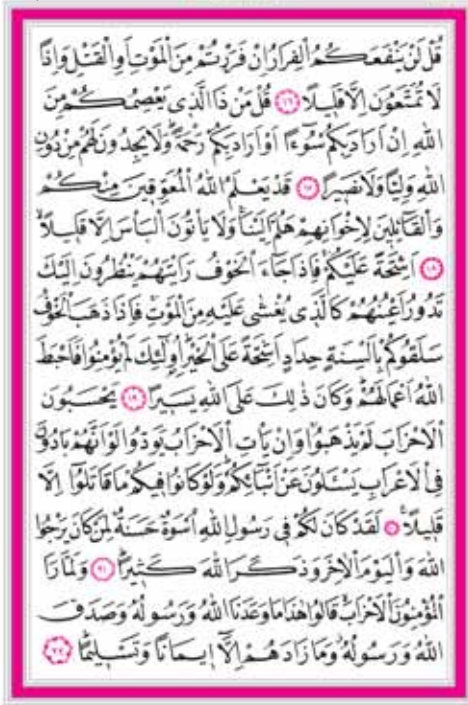 قُلْ لَنْ يَنْفَعَكُمُ الْفِرَارُ اِنْ فَرَرْتُمْ مِنَ الْمَوْتِ اَوِ الْقَتْلِ وَاِذًا
لَا تُمَتَّعُونَ اِلَّا قَلِيلًا ﴿١٦﴾ قُلْ مَنْ ذَا الَّذِي يَعْصِمُكُمْ مِنَ
اللّٰهِ اِنْ اَرَادَ بِكُمْ سُٓوءًا اَوْ اَرَادَ بِكُمْ رَحْمَةًۜ وَلَا يَجِدُونَ لَهُمْ مِنْ دُونِ
اللّٰهِ وَلِيًّا وَلَا نَصِيرًا ﴿١٧﴾ قَدْ يَعْلَمُ اللّٰهُ الْمُعَوِّقِينَ مِنْكُمْ
وَالْقَٓائِلِينَ لِاِخْوَانِهِمْ هَلُمَّ اِلَيْنَاۚ وَلَا يَأْتُونَ الْبَأْسَ اِلَّا قَلِيلًاۙ
﴿١٨﴾ اَشِحَّةً عَلَيْكُمْۚ فَاِذَا جَٓاءَ الْخَوْفُ رَاَيْتَهُمْ يَنْظُرُونَ اِلَيْكَ
تَدُورُ اَعْيُنُهُمْ كَالَّذِي يُغْشٰى عَلَيْهِ مِنَ الْمَوْتِۚ فَاِذَا ذَهَبَ الْخَوْفُ
سَلَقُوكُمْ بِاَلْسِنَةٍ حِدَادٍ اَشِحَّةً عَلَى الْخَيْرِۜ اُو۬لٰٓئِكَ لَمْ يُؤْمِنُوا فَاَحْبَطَ
اللّٰهُ اَعْمَالَهُمْۜ وَكَانَ ذٰلِكَ عَلَى اللّٰهِ يَسِيرًا ﴿١٩﴾ يَحْسَبُونَ
الْاَحْزَابَ لَمْ يَذْهَبُواۚ وَاِنْ يَأْتِ الْاَحْزَابُ يَوَدُّوا لَوْ اَنَّهُمْ بَادُونَ
فِي الْاَعْرَابِ يَسْـَٔلُونَ عَنْ اَنْبَٓائِكُمْۜ وَلَوْ كَانُوا فِيكُمْ مَا قَاتَلُٓوا اِلَّا
قَلِيلًا۟ ﴿٢٠﴾ لَقَدْ كَانَ لَكُمْ فِي رَسُولِ اللّٰهِ اُسْوَةٌ حَسَنَةٌ لِمَنْ كَانَ يَرْجُوا
اللّٰهَ وَالْيَوْمَ الْاٰخِرَ وَذَكَرَ اللّٰهَ كَثِيرًاۜ ﴿٢١﴾ وَلَمَّا رَاَ
الْمُؤْمِنُونَ الْاَحْزَابَۙ قَالُوا هٰذَا مَا وَعَدَنَا اللّٰهُ وَرَسُولُهُ وَصَدَقَ
اللّٰهُ وَرَسُولُهُۘ وَمَا زَادَهُمْ اِلَّٓا اِيمَانًا وَتَسْلِيمًاۜ ﴿٢٢﴾